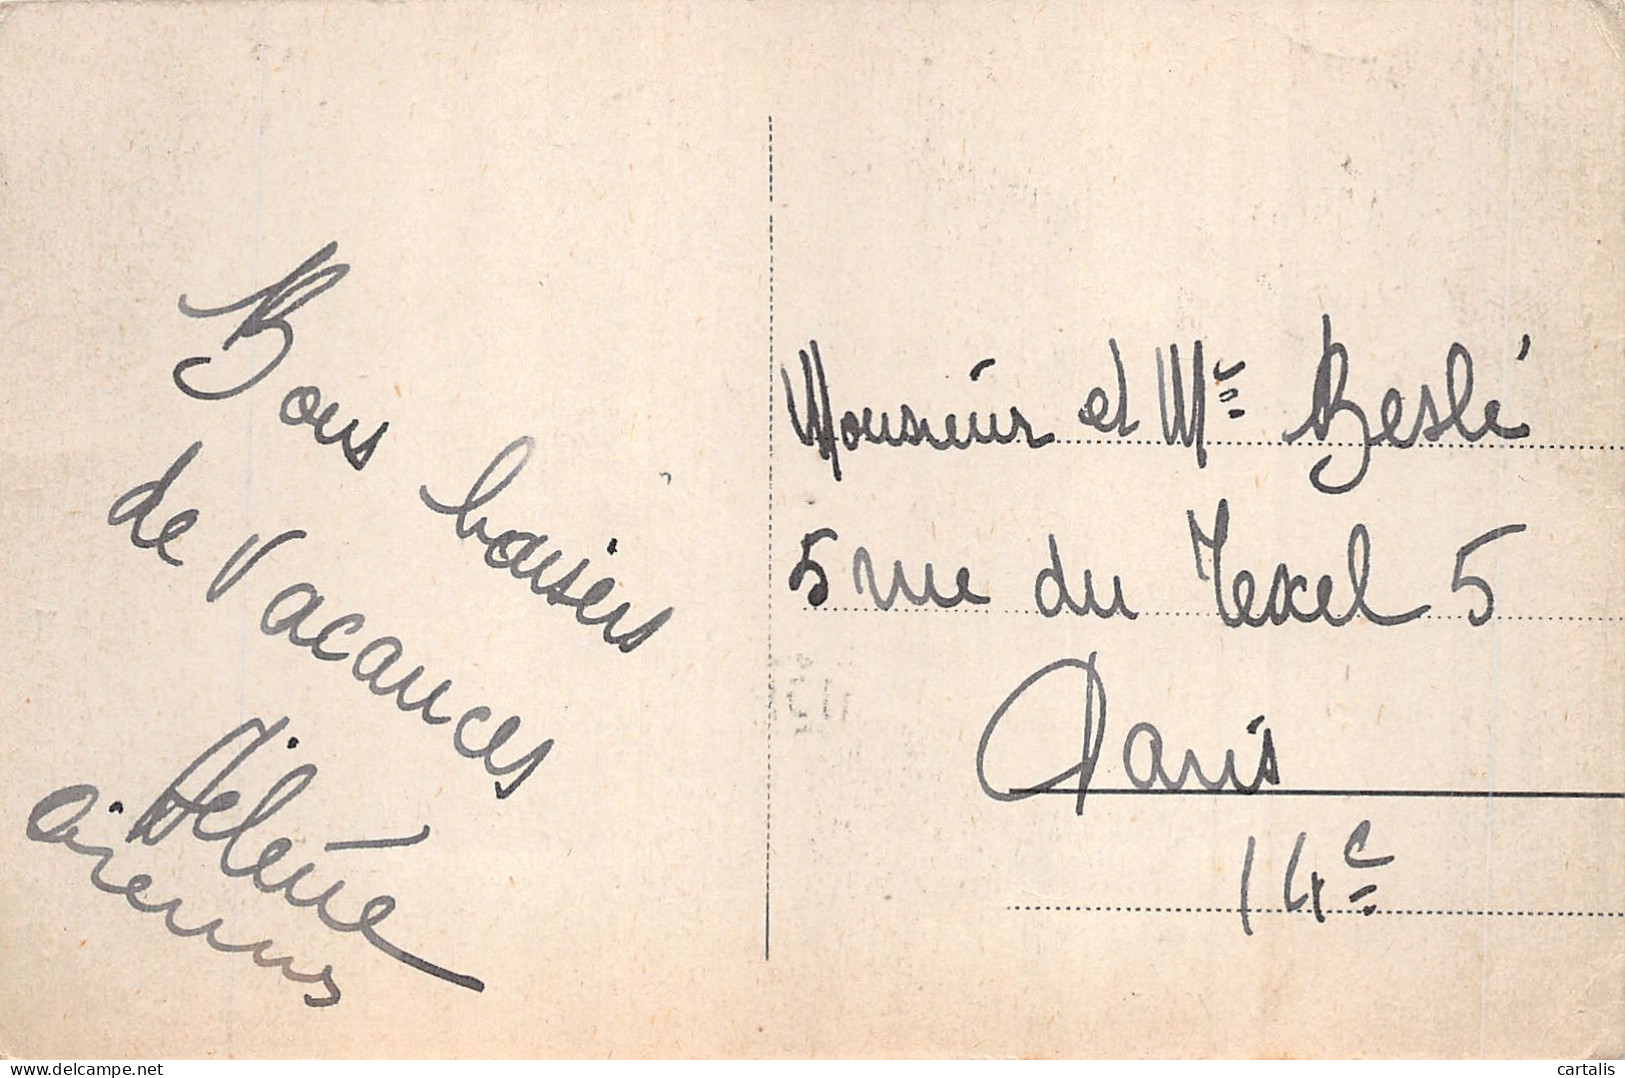 Bons baisers
de Vacances
Hélène
Monsieur et Me Beslé
5 rue du Texel 5
Paris
14e
cartalis